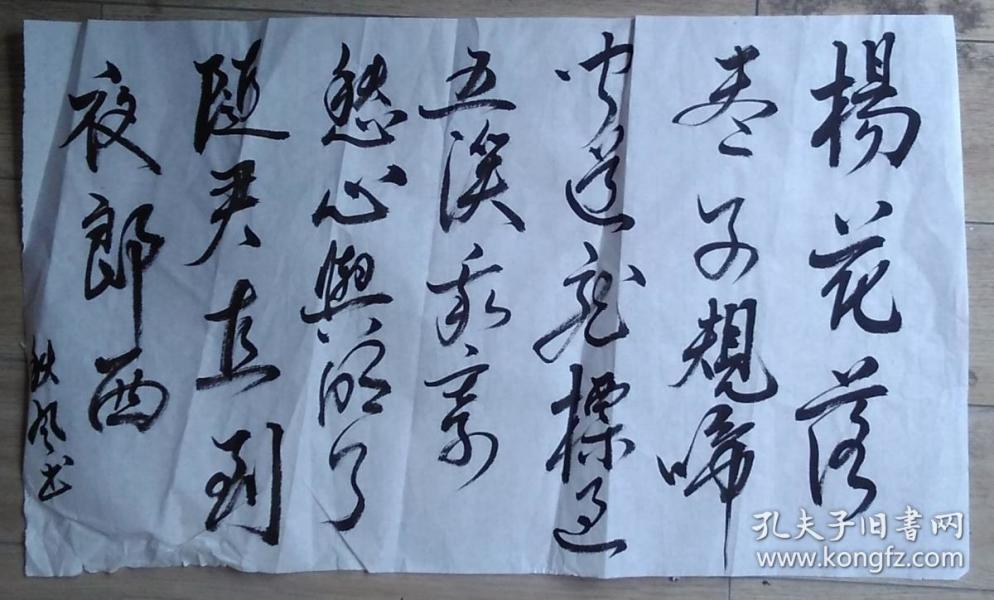 楊花落
尽子規啼
闻道龙標过
五溪我寄
愁心與明月
隨君直到
夜郎西
秋风书
孔夫子旧书网
www.kongfz.com